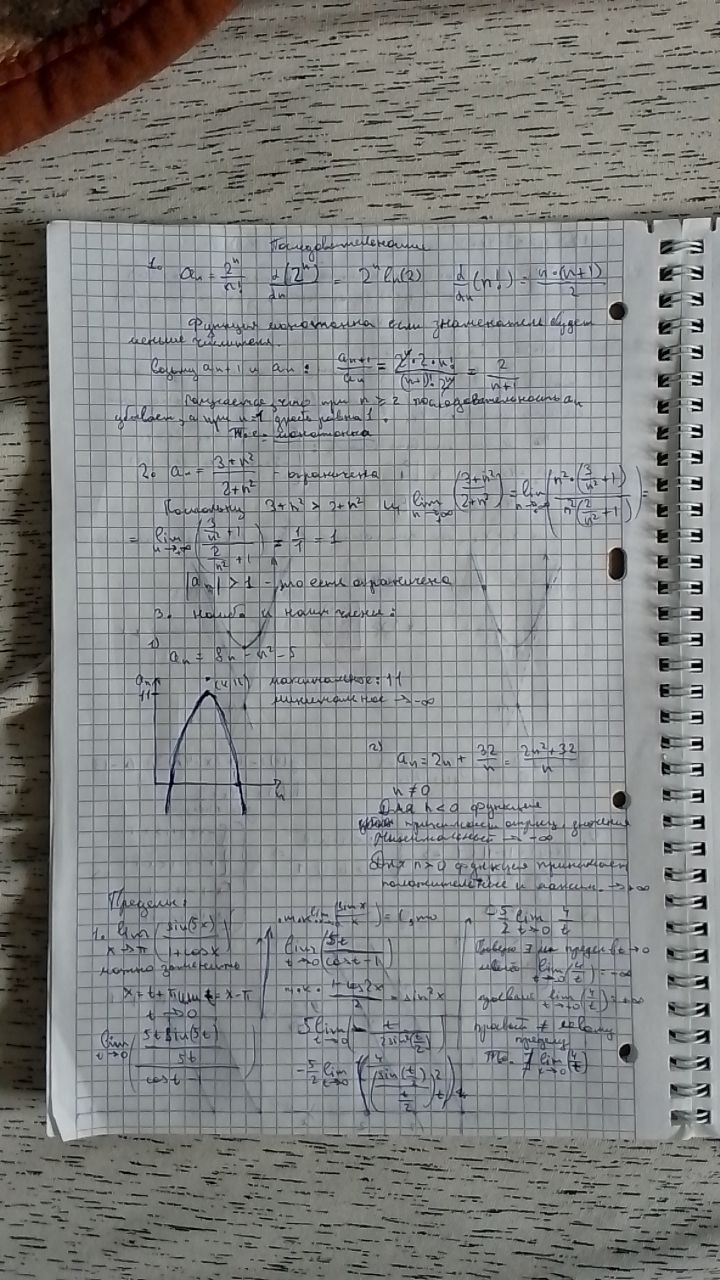 Последовательности
1. aₙ = 2ⁿ/n! d/dn (2ⁿ) = 2ⁿ ln(2) d/dn (n!) = n·(n+1)/2
Функция монотонна если знаменатель будет
меньше числителя.
возьму aₙ₊₁ и aₙ: aₙ₊₁/aₙ = 2ⁿ·2·n!/((n+1)!·2ⁿ) = 2/(n+1)
Получается, что при n ≥ 2 последовательность aₙ
убывает, а при n=1 дробь равна 1.
т.е. монотонна
2. aₙ = (3+n²)/(2+n²) - ограничена
Поскольку 3+n² > 2+n² и, lim n→∞ ((3+n²)/(2+n²)) = lim n→∞ (n²·(3/n²+1)/(n²(2/n²+1))) =
= lim n→∞ ((3/n²+1)/(2/n²+1)) = 1/1 = 1
|aₙ| > 1 - то есть ограничена
3. наиб. и наим члены:
1)
aₙ = 8n - n² - 5
aₙ
11
(4;11)
n
максимальное: 11
минимальное → -∞
2)
aₙ = 2n + 32/n = (2n²+32)/n
n ≠ 0
Для n<0 функция
принимает отриц. значения
Минимальный → -∞
Для n>0 функция принимает
положительные и максим. → +∞
Пределы:
1. lim x→π (sin(5x)/(1+cosx))
можно заменить
x = t+π или t = x-π
t→0
lim t→0 ((5t sin(5t)/5t)/(cost-1))
т.к. lim (sin x/x) = 1, то
lim t→0 (5t/(cost-1))
т.к. (1-cos2x)/2 = sin²x
5 lim t→0 (-t/(2sin²(t/2)))
-5/2 lim t→0 (4/((sin(t/2)/(t/2))² t))
-5/2 lim t→0 4/t
левый lim t→-0 (4/t) = -∞
правый lim t→+0 (4/t) = +∞
правый ≠ левому
пределу
то. ∄ lim x→0 (4/t)